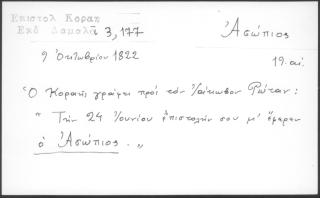 Επιστολ Κοραη
Εκδ Δαμαλᾶ 3,177
Ἀσώπιος
9 Ὀκτωβρίου 1822
19. αἰ.
Ὁ Κοραῆς γράφει πρὸς τὸν Ἰάκωβον Ρώταν :
" Τὴν 24 Ἰουνίου ἐπιστολήν σου μ' ἔφερεν
ὁ Ἀσώπιος . "